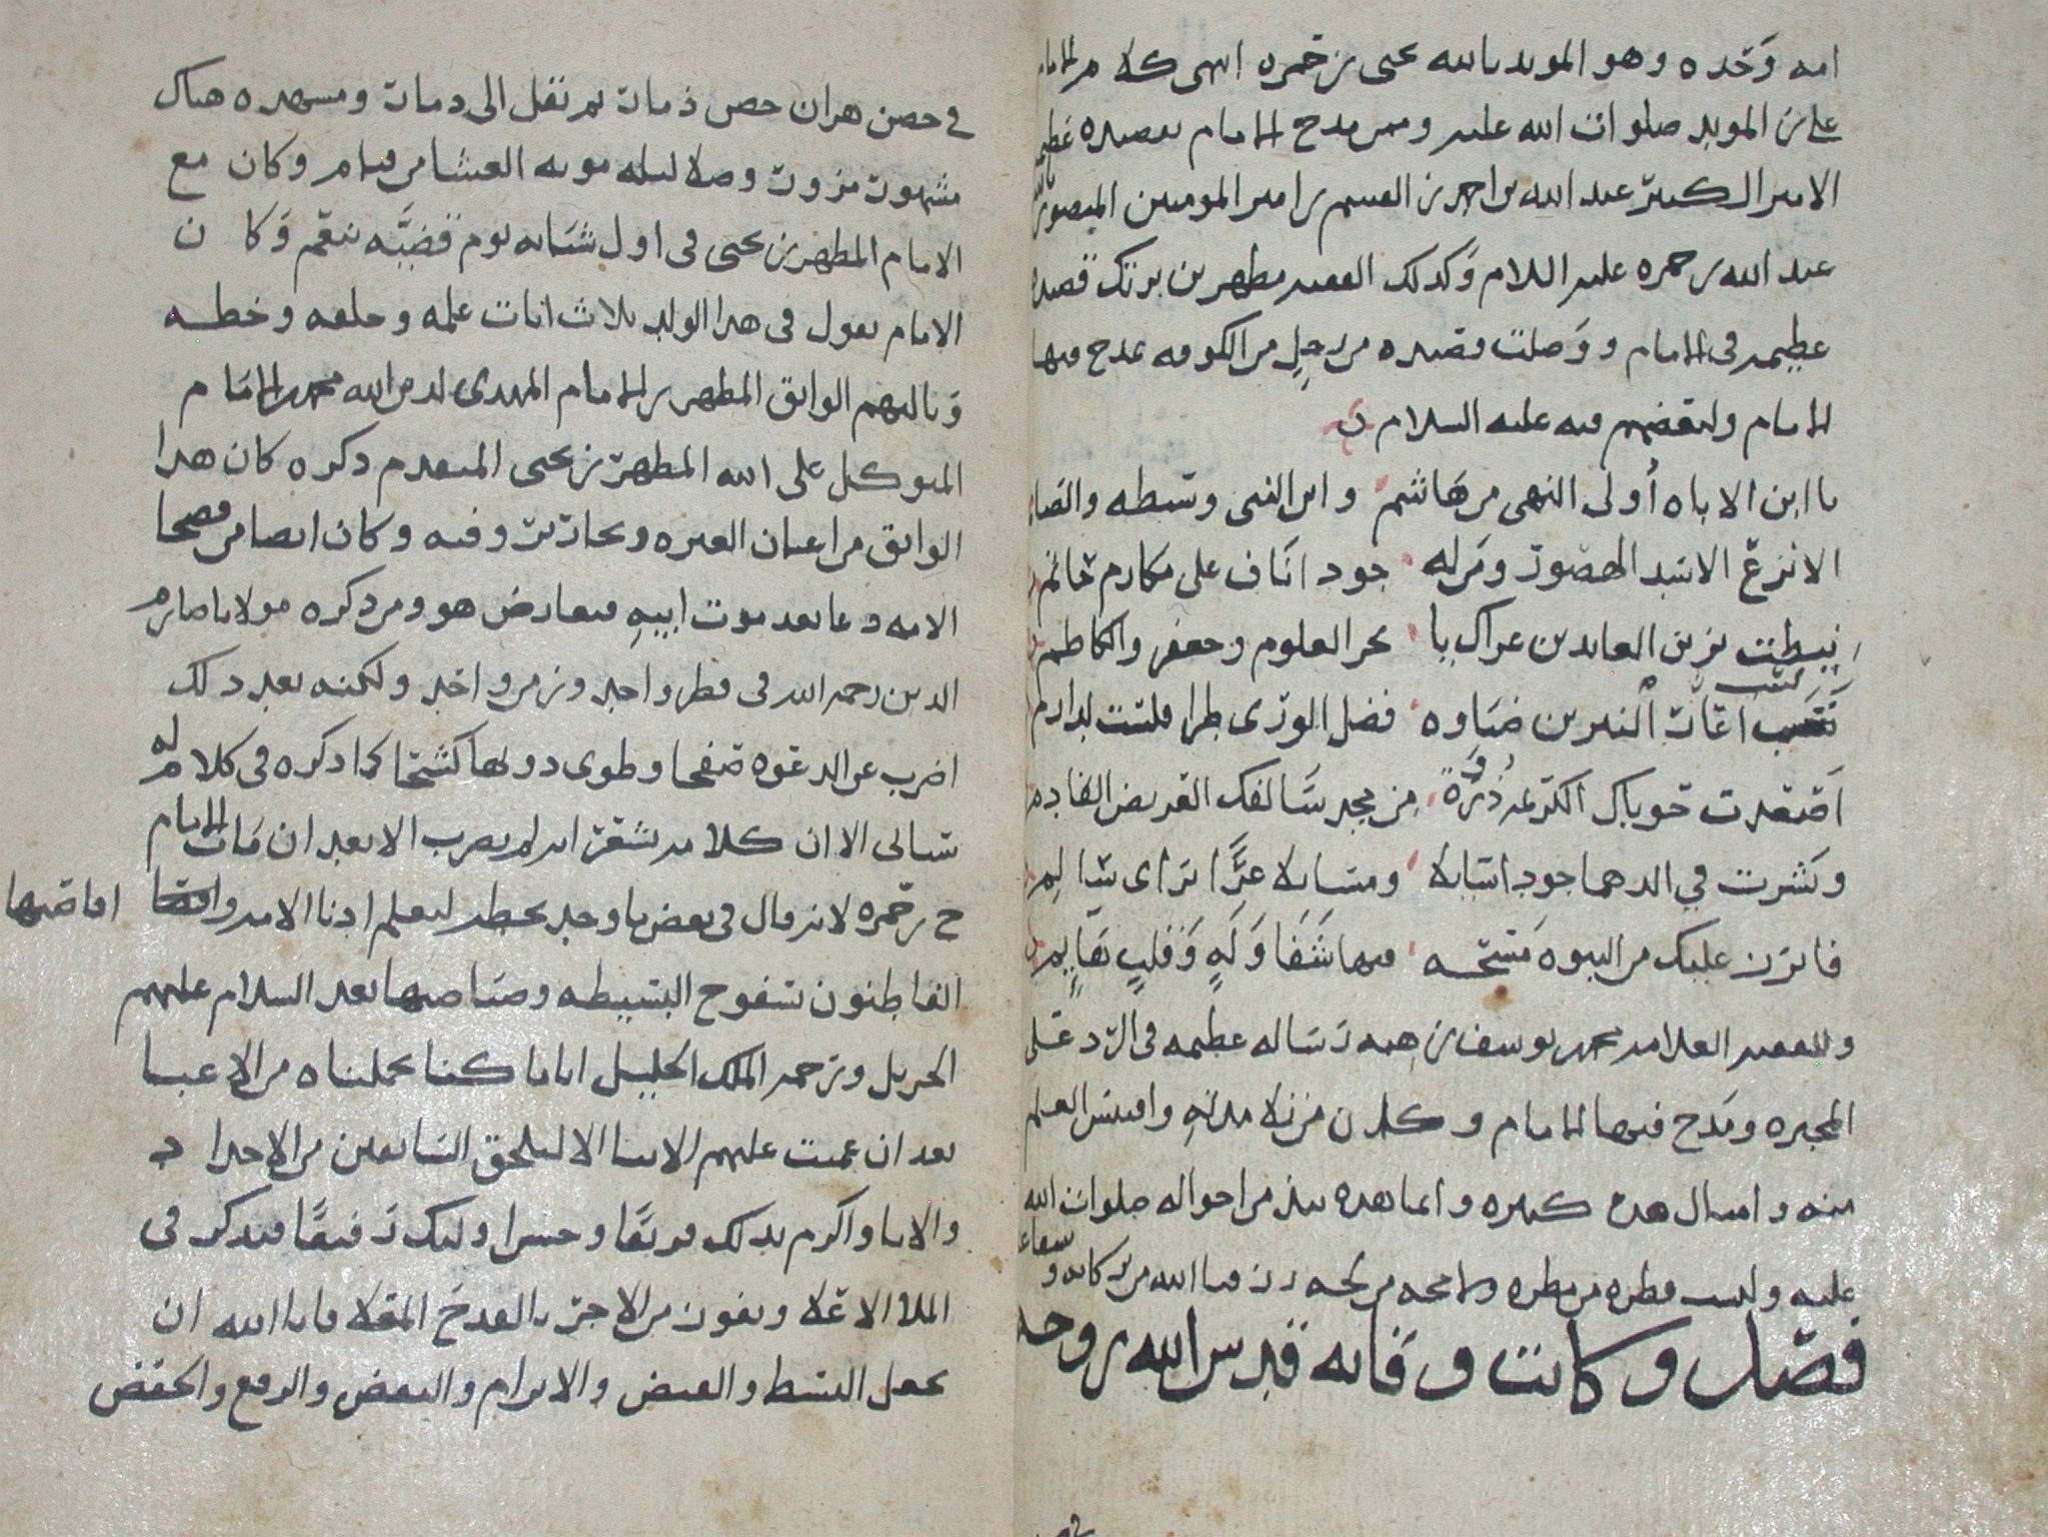 امه وحده وهو المويد بالله يحيى بن حمزه انتهى كلام الامام
علي بن المويد صلوات الله عليه وممن مدح الامام بقصيده عظيمه
الامير الكبير عبد الله بن احمد بن القسم بن امير المومنين المنصور بالله
عبد الله بن حمزه عليه السلام وكذلك الفقيه مطهر بن تريك قصيده
عظيمه في الامام ووصلت قصيده من رجل من الكوفه يمدح فيها
الامام وبعضهم فيه عليه السلام
يا ابن الاباه أولى النهى من هاشم وابن النبي وسبطه والقا
الانزع الاسد الهصور ومن له جود اناف على مكارم حاتم
نيطت بزين العابدين عراك يا بحر العلوم وجعفر والكاظم
نسب اعار النيرين ضياوه فضل الورى طرا فلست لدارم
اقتعدت حوباك الكريمه ذروة من مجد سالفك القريض الفادم
ونشرت في الدهما جودا سايلا ومسايلا عزا تراى شالم
فاترن عليك من النبوه مسحه فيها شفا وله وقلب هايم
وللفقيه العلامه محمد يوسف بن هبه رساله عظيمه في الرد على
المجبره ومدح فيها الامام وكان من زلا مدته واقتبس العلم
منه وامثال هده كثيره وانما هده نبذ من احواله صلوات الله
عليه وليست قطره من مطره ولا مجه من لجه رزقنا الله من بركاته وشفاعته
فصل وكانت وفاته قدس الله روحه
في حصن هران حصن ذمار ثم نقل الى دمار ومشهده هناك
مشهور مزور وصلا ليله موته العشا من قيام وكان مع
الامام المطهر بن يحيى في اول شبابه يوم قضيه تنعم وكان
الامام يقول في هدا الولد ثلاث ايات علمه وخلقه وخطه
وثالثهم الواثق المطهر بن الامام المهدي لدين الله محمد بن الامام
المتوكل على الله المطهر بن يحيى المتقدم دكره كان هدا
الواثق من اعيان العتره ونحارير وقته وكان ايضا من فصحا
الامه دعا بعد موت ابيه فتعارض هو ومن دكره مولانا صارم
الدين رحمه الله في قطر واحد وزمن واحد ولكنه بعد دلك
اضرب عن الدعوه صفحا وطوى دونها كشحا كما دكره في كلام له
سياتى الا ان كلامه يشعر انه لم يضرب الا بعد ان مات الامام
ح بن حمزه لانه قال في بعض ما وجد بخطه ليعلم ادنا الامه واقصاها
القاطنون بسفوح البسيطه وصياصيها بعد السلام عليهم
الجزيل وترحمه الملك الجليل انا ما كنا تحملناه من الاعبا
بعد ان عميت عليهم الانبا الا لنلحق السابقين من الاجداد
والابا واكرم بدلك فريقا وحسن اوليك رفيقا فندكر في
الملا الاعلا ونفوز من الاجر بالقدح المعلا فابا الله ان
يجعل البسط والقبض والابرام والنقض والرفع والخفض